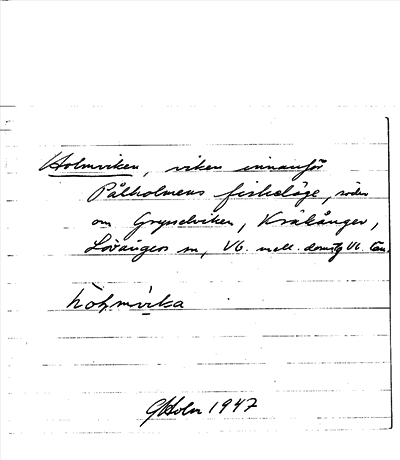 Holmviken, viken innanför
Pålholmens fiskeläge, söder
om Grynselviken, Kräkånger,
Lövångers sn, Vb. mell. domsg Vb. län.
hòḷmvika
G Holm 1947